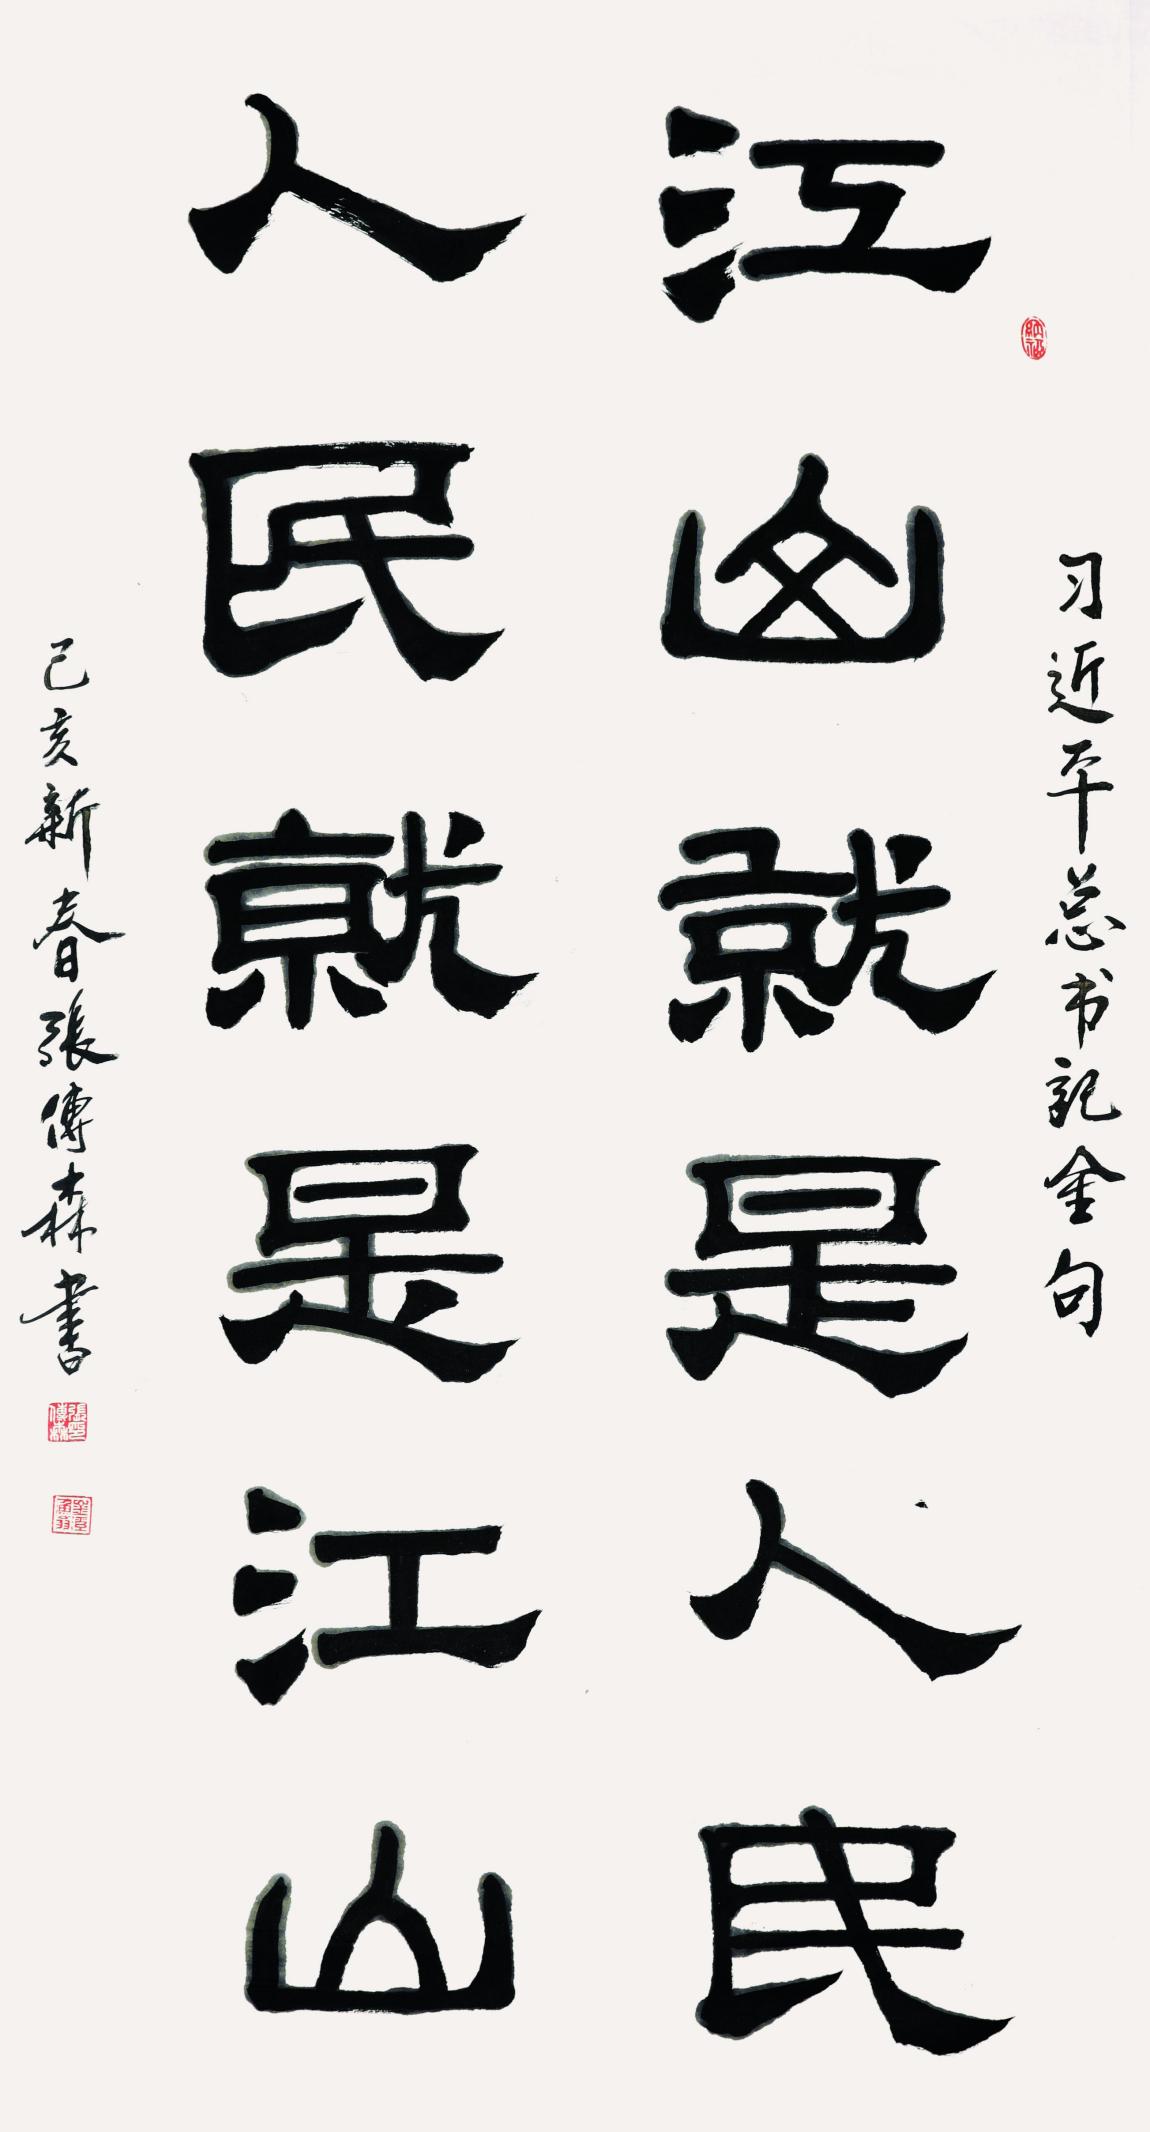 习近平总书記金句
江山就是人民
人民就是江山
己亥新春張傳森書